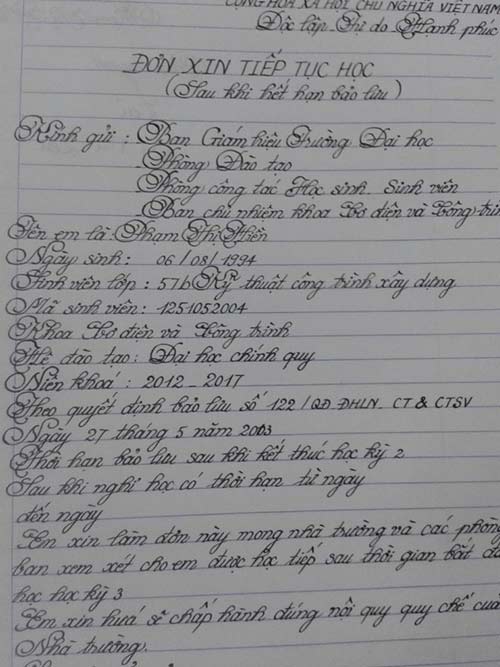 CỘNG HÒA XÃ HỘI CHỦ NGHĨA VIỆT NAM
Độc lập Tự do Hạnh phúc
ĐƠN XIN TIẾP TỤC HỌC
(Sau khi hết hạn bảo lưu)
Kính gửi : Ban Giám hiệu Trường Đại học
Phòng Đào tạo
Phòng công tác Học sinh. Sinh viên
Ban chủ nhiệm khoa Cơ điện và Công trìn
Tên em là : Phạm Thị Hiền
Ngày sinh : 06/08/1994
Sinh viên lớp : 57b Kỹ thuật công trình xây dựng
Mã sinh viên : 1251052004
Khoa Cơ điện và Công trình
Hệ đào tạo : Đại học chính quy
Niên khoá : 2012 - 2017
Theo quyết định bảo lưu số 122 / QĐ ĐHLN. CT & CTSV
Ngày 27 tháng 5 năm 2003
Thời hạn bảo lưu sau khi kết thúc học kỳ 2
Sau khi nghỉ học có thời hạn từ ngày
đến ngày
Em xin làm đơn này mong nhà trường và các phòng
ban xem xét cho em được học tiếp sau thời gian bắt đầ
học học kỳ 3
Em xin hứa sẽ chấp hành đúng nội quy quy chế của
Nhà trường.